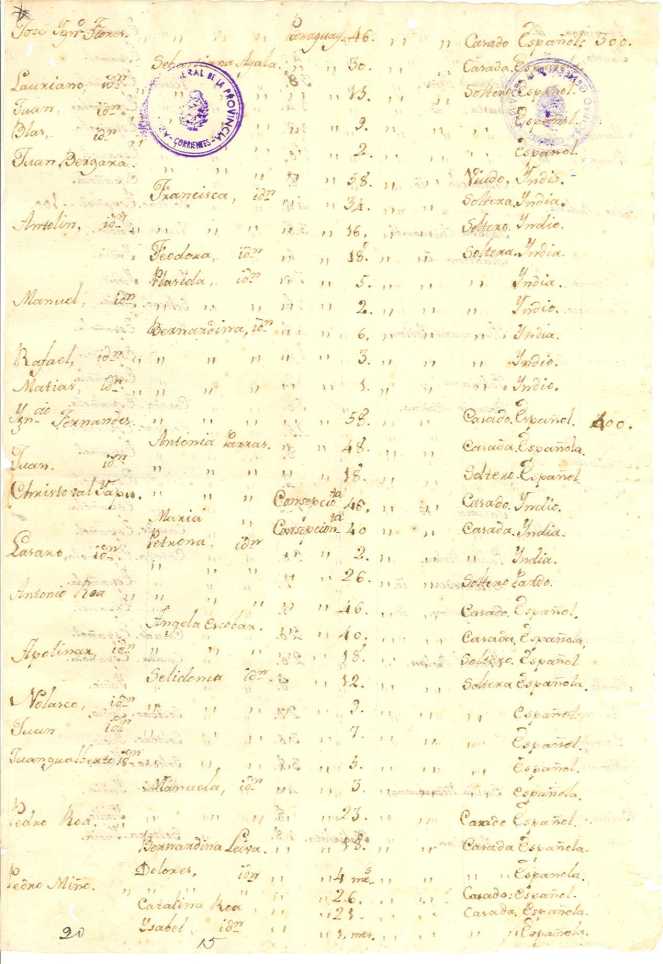 José Ygn.º Flores. Paraguay. 46. " " Casado Español. 300.
Sebastiana Ayala. " " 30. " " Casada. Española
Lauriano, idm " " 13. " " Soltero. Español.
Juan, idm " " " Español.
Blas, idm " " 9. " " " Español.
" " 2. " " "
Juan Bergara. " " 58. " " Viudo, Yndio.
Francisca, idm " " 34. " " Soltera. Yndia.
Antolin, idm " " " " " 16. " " Soltero. Yndio.
Teodora, idm " " 18. " " Soltera. Yndia
Plasida, idm " " 5. " " " Yndia.
Manuel, idm " " " " " 2. " " " Yndio.
Bernardina, idm " " 6. " " " Yndia.
Rafael, idm " " " " " 3. " " " Yndio.
Matias, idm " " " " " 1. " " " Yndio.
Ygn.cio Fernandes. " " " " " 58. " " Casado. Español. 400.
Antonia Parras. " " 48. " " Casada. Española.
Juan. idm " " " " " 18. " " Soltero. Español
Christoval Tapia. " " " Consepcion 48. " " Casado. Yndio.
Maria " Consepcion 40 " " Casada. Yndia.
Lasaro, idm Petrona idm " " 2. " " " Yndia.
" " " " " 26. " " Soltero Pardo.
Antonio Roa " " " " " 46. " " Casado. Español.
Angela Escobar. " " 40. " " Casada, Española,
Apolinar idm " " " " " 18. " " Soltero. Español
Selidonia idm. " " 12. " " Soltera Española.
Nolasco, idm " " " " 9. " " " Español.
Juan idm " " " " " 7. " " " Español.
Juangualberto idm " " " " 5. " " " Español.
Manuela, idm " " 3. " " " Española.
Pedro Roa. " " " " " 23. " " Casado Español.
Bernardina Leiva. " " 18. " " Casada Española.
Dolores. idm " " 4 mes " " " Española.
Pedro Miño. " " " " " 26. " " Casado. Español.
Catalina Roa " " 21. " " Casada. Española.
Ysabel idm " " 3. mes. " " " Española.
20 15
GENERAL DE LA PROVINCIA
CORRIENTES